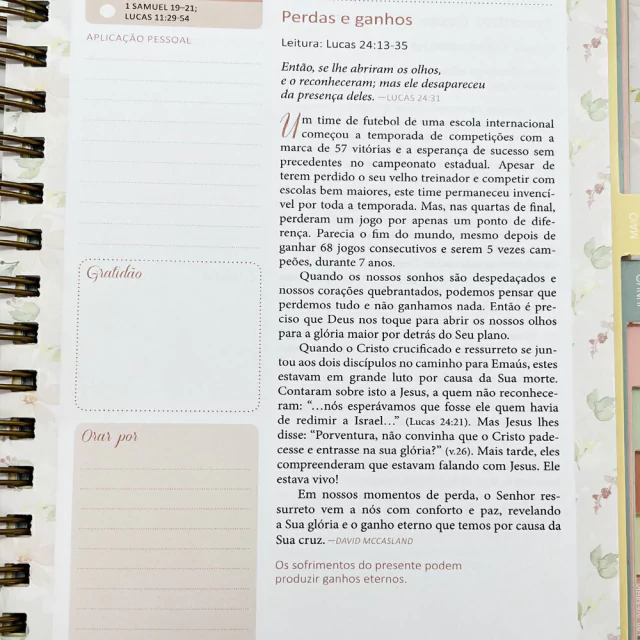 1 SAMUEL 19–21;
LUCAS 11:29-54
APLICAÇÃO PESSOAL
Gratidão
Orar por
Perdas e ganhos
Leitura: Lucas 24:13-35
Então, se lhe abriram os olhos,
e o reconheceram; mas ele desapareceu
da presença deles. —LUCAS 24:31
Um time de futebol de uma escola internacional
começou a temporada de competições com a
marca de 57 vitórias e a esperança de sucesso sem
precedentes no campeonato estadual. Apesar de
terem perdido o seu velho treinador e competir com
escolas bem maiores, este time permaneceu invencí-
vel por toda a temporada. Mas, nas quartas de final,
perderam um jogo por apenas um ponto de dife-
rença. Parecia o fim do mundo, mesmo depois de
ganhar 68 jogos consecutivos e serem 5 vezes cam-
peões, durante 7 anos.
Quando os nossos sonhos são despedaçados e
nossos corações quebrantados, podemos pensar que
perdemos tudo e não ganhamos nada. Então é pre-
ciso que Deus nos toque para abrir os nossos olhos
para a glória maior por detrás do Seu plano.
Quando o Cristo crucificado e ressurreto se jun-
tou aos dois discípulos no caminho para Emaús, estes
estavam em grande luto por causa da Sua morte.
Contaram sobre isto a Jesus, a quem não reconhece-
ram: “…nós esperávamos que fosse ele quem havia
de redimir a Israel…” (Lucas 24:21). Mas Jesus lhes
disse: “Porventura, não convinha que o Cristo pade-
cesse e entrasse na sua glória?” (v.26). Mais tarde, eles
compreenderam que estavam falando com Jesus. Ele
estava vivo!
Em nossos momentos de perda, o Senhor res-
surreto vem a nós com conforto e paz, revelando
a Sua glória e o ganho eterno que temos por causa da
Sua cruz. —DAVID MCCASLAND
Os sofrimentos do presente podem
produzir ganhos eternos.